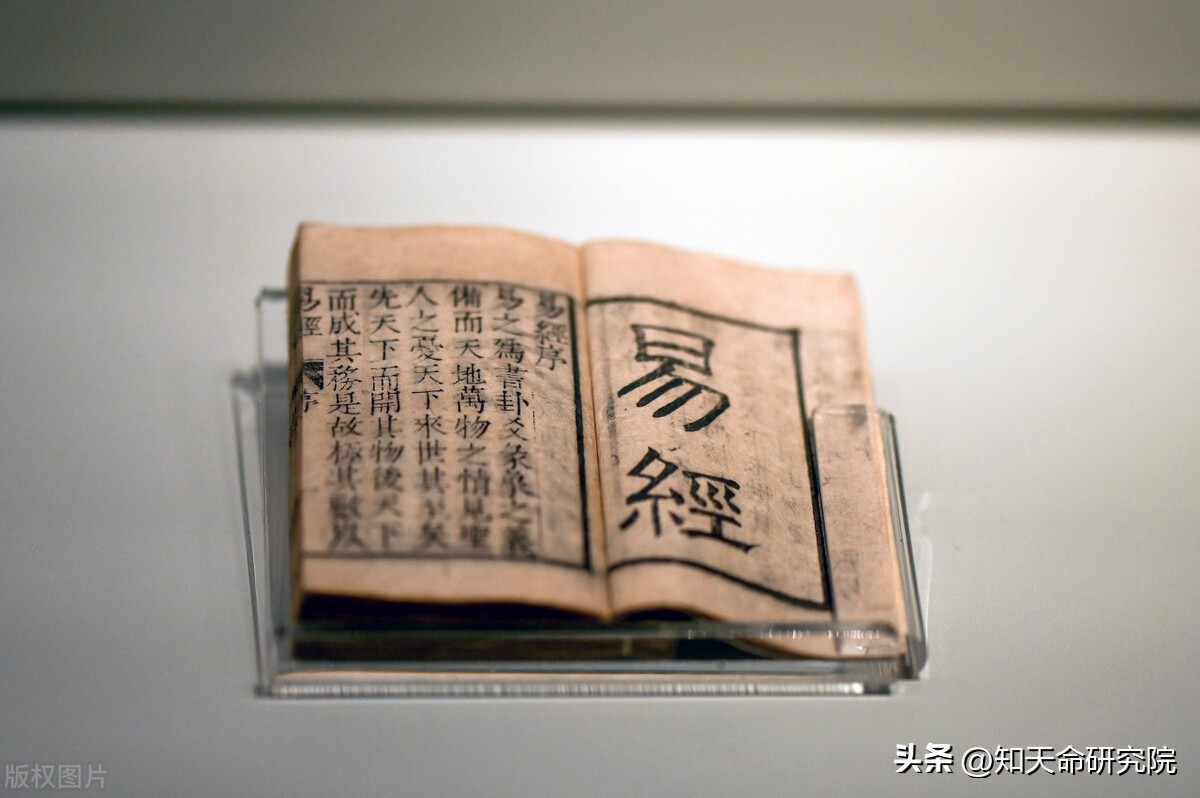 易經
易經序
易之爲書卦爻彖象之義
備而天地萬物之情見聖
人之憂天下來世其至矣
先天下而開其物後天下
而成其務是故極其數以
易經 序
版权图片
头条 @知天命研究院